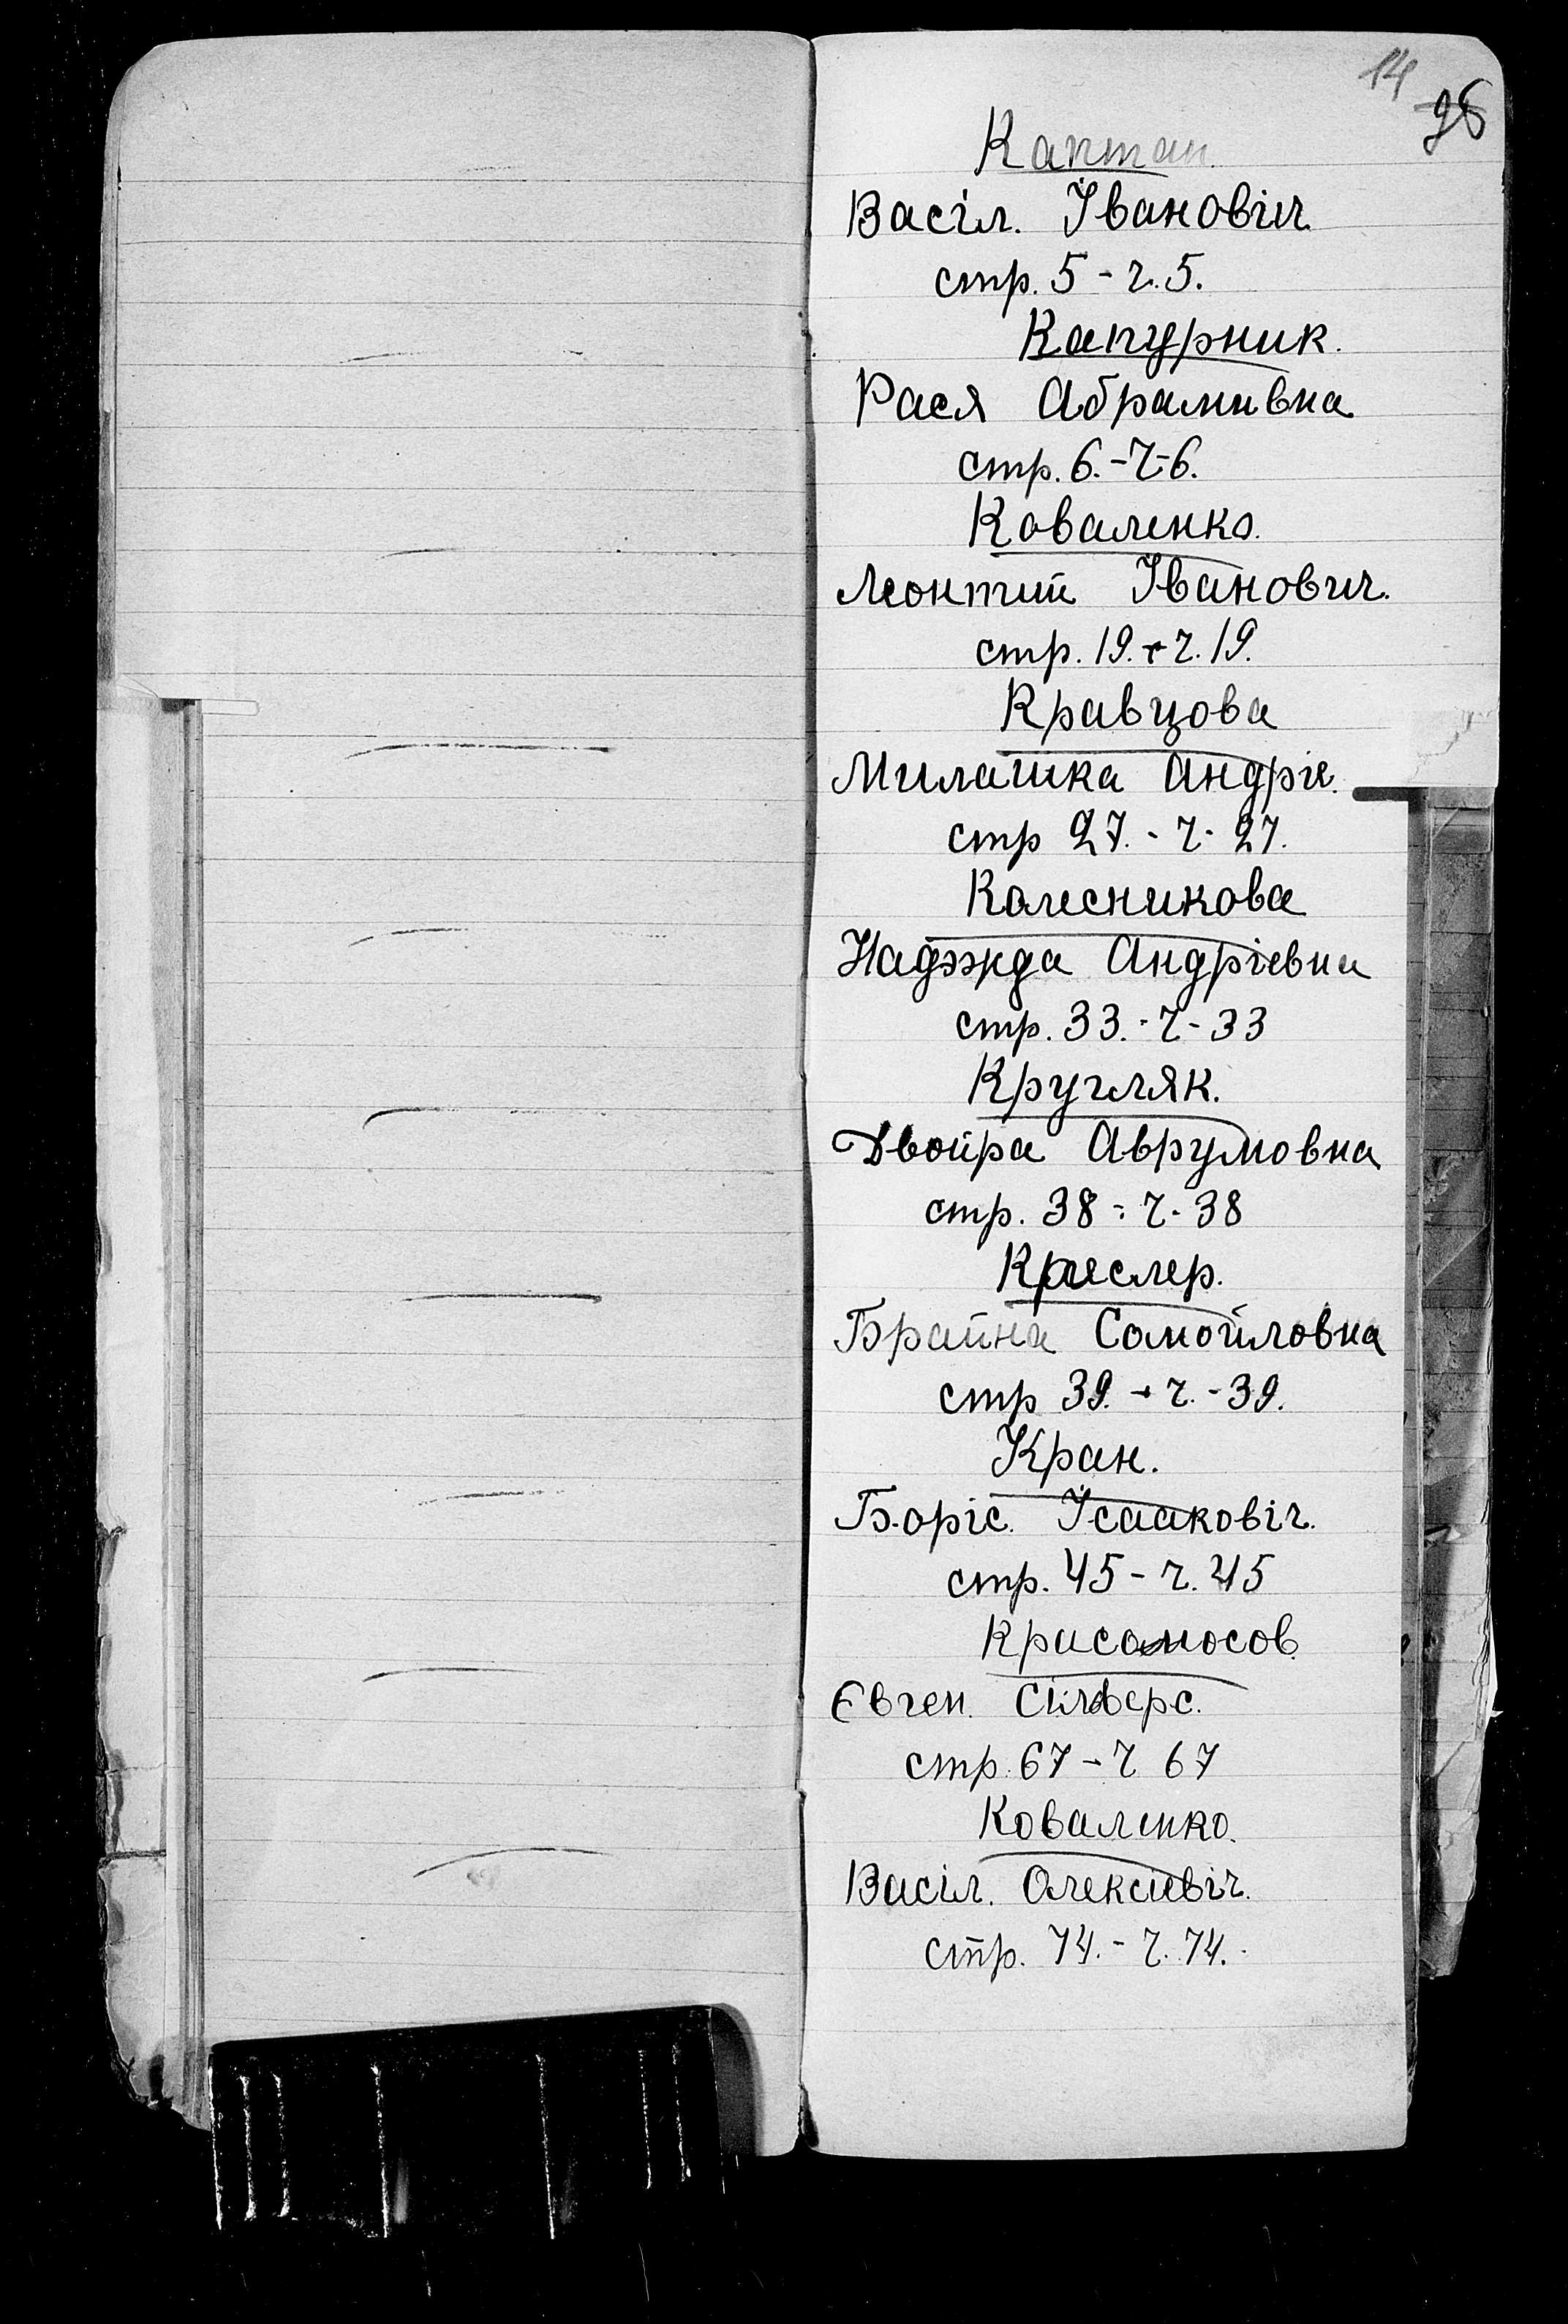 14
98
Каптан.
Васіл. Івановіч
стр. 5 - ч. 5.
Капурник.
Рася Абрамивна
стр. 6. - ч - 6.
Коваленко.
Леонтий Іванович.
стр. 19. - ч. 19.
Кравцова
Милашка Андріє.
стр 27. - ч - 27.
Колесникова
Надэжда Андрієвна
стр. 33. - ч - 33
Кругляк.
Двойра Аврумовна
стр. 38 - ч - 38
Креслер.
Брайна Самойловна
стр 39. - ч. - 39.
Кран.
Боріс. Ісааковіч.
стр. 45 - ч. 45
Євген.
стр. 67 - ч 67
Коваленко.
Васіл. Олексиевіч.
стр. 74. - ч. 74.